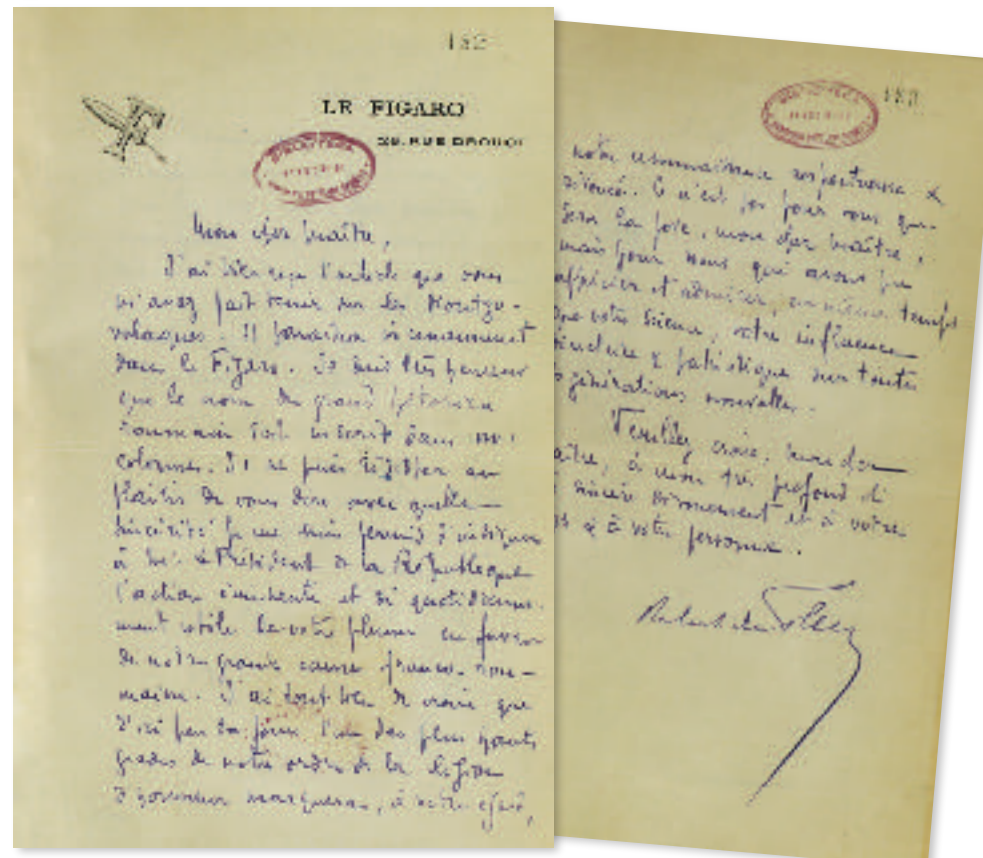 182
LE FIGARO
26, RUE DROUOT
Mon cher Maître,
J'ai bien reçu l'article que vous
m'avez fait tenir sur les
Il paraîtra incessamment
dans le Figaro. Je suis très heureux
que le nom du grand historien
roumain soit inscrit dans nos
colonnes. Et je puis au
plaisir de vous dire avec quelle
sincérité je me suis permis d'indiquer
à M. le Président de la République
l'action éminente et si quotidienne-
ment utile de votre plume en faveur
de notre grande cause franco-rou-
maine. J'ai tout lieu de croire que
d'ici peu de jours l'un des plus hauts
grades de notre ordre de la Légion
d'honneur marquera, à votre égard,
183
notre reconnaissance respectueuse &
dévouée. Ce n'est pas pour vous que
sera la joie, mon cher Maître,
mais pour nous qui avons pu
apprécier et admirer, en même temps
que votre science, votre influence
& patriotique sur toutes
générations nouvelles.
Veuillez croire, mon cher
à mon très profond &
sincère dévouement et à votre
& à votre personne.
Robert de Flers